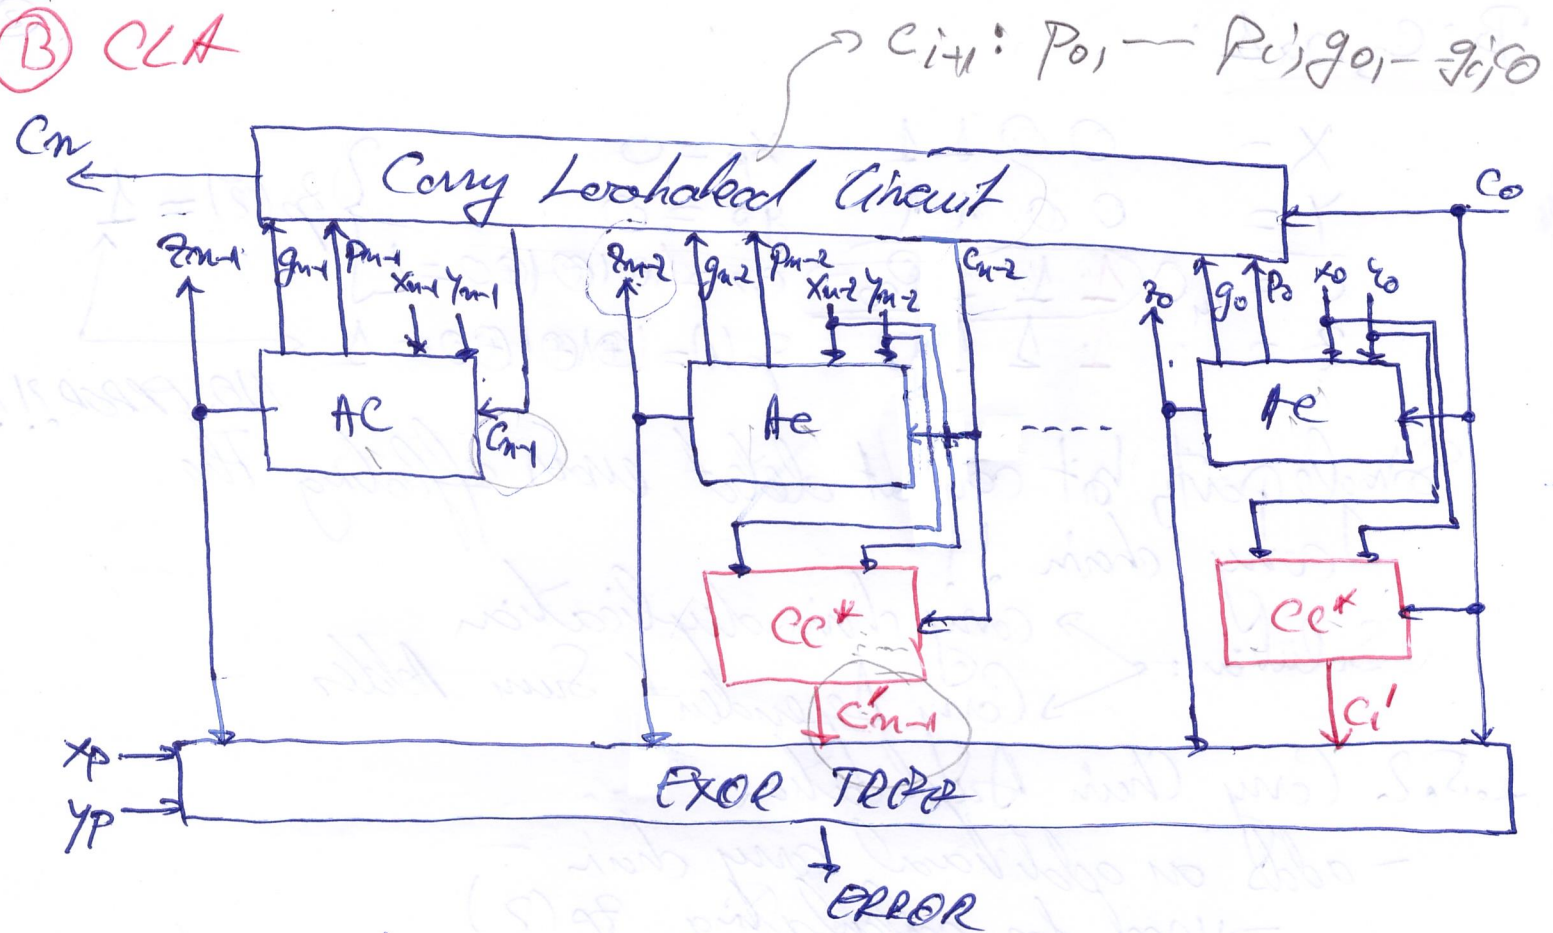 B CLA
Ci+1: p0, — pi, g0, -- gi, c0
Cn
Carry Lookahead Circuit
C0
Zn-1 gn-1 Pn-1 Xn-1 Yn-1
Zn-2 gn-2 Pn-2 Xn-2 Yn-2 Cn-2
z0 g0 p0 x0 y0
AC Cn-1
AC
----
AC
CC*
CC*
C'n-1
C1'
Xp
Yp
EXOR TREE
ERROR